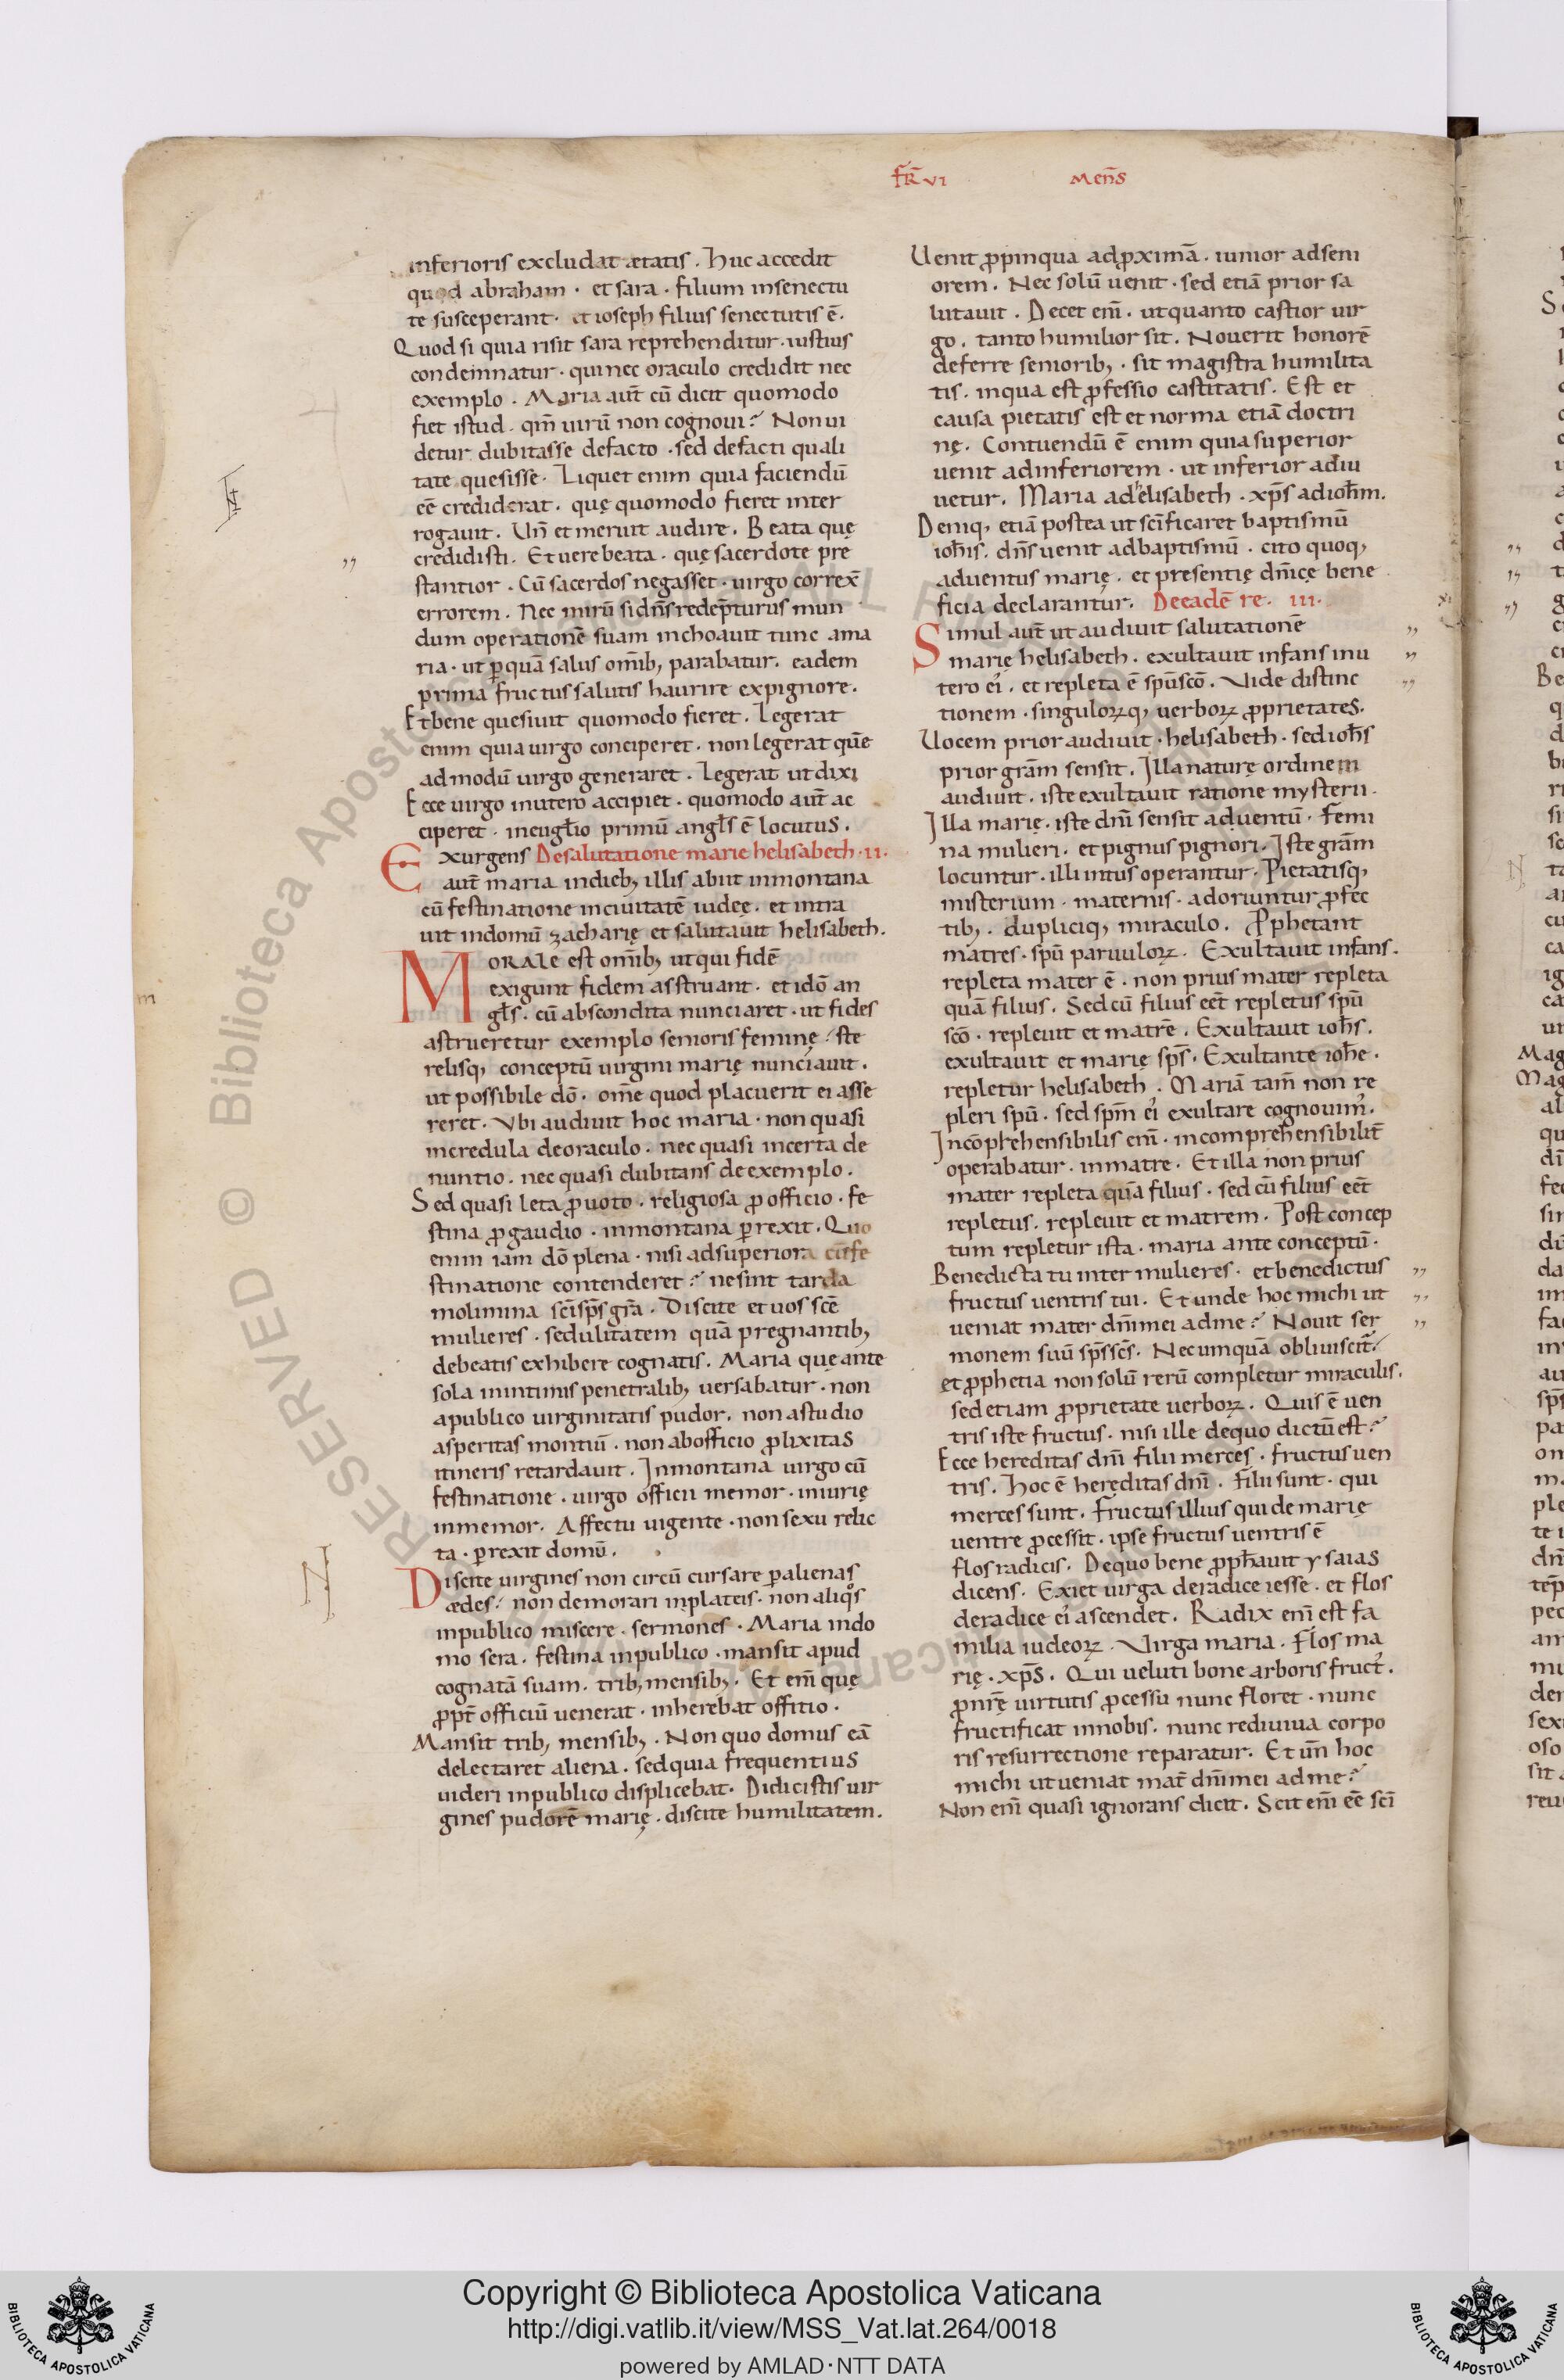 FR̄ VI MEN̄S
inferioris excludat ætatis. Huc accedit
quod abraham · et sara · filium insenectu
te susceperant · et ioseph filius senectutis ē.
Quod si quia risit sara reprehenditur · iustius
condemnatur · qui nec oraculo credidit nec
exemplo. Maria aut̄ cū dicit quomodo
fiet istud · qm̄ uirū non cognoui? Non ui
detur dubitasse defacto · sed defacti quali
tate quesisse. Liquet enim quia faciendū
eē crediderat. quę quomodo fieret inter
rogauit. Un̄ et meruit audire. Beata quę
credidisti. Et uere beata · quę sacerdote pre
stantior. Cū sacerdos negasset · uirgo correx̄
errorem. Nec mirū si dn̄s redep̄turus mun
dum operationē suam inchoauit tunc ama
ria · ut ꝑquā salus om̄ib; parabatur. eadem
prima fructus salutis haurire expignore.
Et bene quesiuit quomodo fieret. Legerat
enim quia uirgo conciperet. non legerat quē
admodū uirgo generaret. Legerat ut dixi
Ecce uirgo inutero accipiet · quomodo aut̄ ac
ciperet · ineugl̄io primū angl̄s ē locutus.
Exurgens De salutatione marie helisabeth · II.
aut̄ maria indieb; illis abiit inmontana
cū festinatione inciuitatē iudeę. et intra
uit indomū zacharię et salutauit helisabeth.
MORALE est om̄ib; ut qui fidē
exigunt fidem asstruant. et idō an
gl̄s. cū abscondita nunciaret · ut fides
astrueretur exemplo senioris feminę ste
relisq; conceptū uirgini marię nunciauit.
ut possibile dō. om̄e quod placuerit ei asse
reret. Vbi audiuit hoc maria · non quasi
incredula deoraculo. nec quasi incerta de
nuntio. nec quasi dubitans de exemplo.
Sed quasi leta ꝓuoto · religiosa ꝓ officio · fe
stina ꝓ gaudio · inmontana ꝑrexit. Quo
enim iam dō plena · nisi adsuperiora cū fe
stinatione contenderet? nesint tarda
molimina sc̄i sp̄s gr̄a. Discite et uos sc̄ē
mulieres · sedulitatem quā pregnantib;
debeatis exhibere cognatis. Maria quę ante
sola inintimis penetralib; uersabatur · non
apublico uirginitatis pudor. non astudio
asperitas montiū · non abofficio ꝓlixitas
itineris retardauit. Inmontana uirgo cū
festinatione · uirgo officii memor · iniurię
inmemor. Affectu uigente · non sexu relic
ta · ꝑrexit domū.
Discite uirgines non circū cursare ꝑalienas
ædes. non demorari inplateis · non aliqͦs
inpublico miscere · sermones · Maria indo
mo sera. festina inpublico · mansit apud
cognatā suam. trib; mensib;. Et eni̅ quę
ꝓpt̄ officiū uenerat · inherebat offitio.
Mansit trib; mensib;. Non quo domus eā
delectaret aliena. sed quia frequentius
uideri inpublico displicebat. Didicistis uir
gines pudorē marię. discite humilitatem.
Uenit ꝓpinqua adꝓximā. iunior adseni
orem. Nec solū uenit · sed etiā prior sa
lutauit. Decet eni̅. ut quanto castior uir
go. tanto humilior sit. Nouerit honorē
deferre seniorib; · sit magistra humilita
tis. inqua est ꝓfessio castitatis. Est et
causa pietatis est et norma etiā doctri
nę. Contuendū ē enim quia superior
uenit adinferiorem · ut inferior adiu
uetur. Maria ad helisabeth · xp̄s ad ioh̄m.
Deniq; etiā postea ut sc̄ificaret baptismū
ioh̄is. dn̄s uenit adbaptismū. cito quoq;
aduentus marię. et presentię dn̄icę bene
ficia declarantur. De eadē re. III.
Simul aut̄ ut audiuit salutatione
marię helisabeth. exultauit infans inu
tero ei᾽. et repleta ē spū scō. Vide distinc
tionem · singuloꝝq; uerboꝝ ꝓprietates.
Uocem prior audiuit · helisabeth · sed ioh̄s
prior grām sensit. Illa naturę ordinem
audiuit. iste exultauit ratione mysterii.
Illa marię · iste dn̄i sensit aduentū. Femi
na mulieri. et pignus pignori. Iste grām
locuntur · illi intus operantur. Pietatisq;
misterium · maternis · adoriuntur ꝓfec
tib;. dupliciq; miraculo. Ꝓphetant
matres · spū paruuloꝝ. Exultauit infans.
repleta mater ē · non prius mater repleta
quā filius. Sed cū filius eēt repletus spū
scō · repleuit et matrē. Exultauit ioh̄s.
exultauit et marię sp̄s. Exultante ioh̄e.
repletur helisabeth. Mariā tam̄ non re
pleri spū. sed spm̄ ei᾽ exultare cognouim᾽.
Incōprehensibilis eni̅ · incomprehensibilit̄
operabatur. inmatre. Et illa non prius
mater repleta quā filius. sed cū filius eēt
repletus. repleuit et matrem. Post concep
tum repletur ista · maria ante conceptū.
Benedicta tu inter mulieres · et benedictus
fructus uentris tui. Et unde hoc michi ut
ueniat mater dn̄i mei adme? Nouit ser
monem suū sp̄s sc̄s. Nec umquā obliuiscit᾽.
et ꝓphetia non solū rerū completur miraculis.
sed etiam ꝓprietate uerboꝝ. Quis ē uen
tris iste fructus. nisi ille dequo dictū est?
Ecce hereditas dn̄i filii merces. fructus uen
tris. Hoc ē hereditas dn̄i. filii sunt. qui
merces sunt. Fructus illius qui de marię
uentre ꝓcessit. ipse fructus uentris ē
flos radicis. Dequo bene ꝓph̄auit ysaias
dicens. Exiet uirga deradice iesse · et flos
deradice ei᾽ ascendet. Radix eni̅ est fa
milia iudeoꝝ. Virga maria. Flos ma
rię · xp̄s. Qui ueluti bone arboris fruct᾽.
ꝓ nr̄ę uirtutis ꝓcessu nunc floret · nunc
fructificat innobis. nunc rediuiua corpo
ris resurrectione reparatur. Et un̄ hoc
michi ut ueniat mat̄ dn̄i mei adme?
Non eni̅ quasi ignorans dicit. Scit eni̅ eē sc̄i
Copyright © Biblioteca Apostolica Vaticana
http://digi.vatlib.it/view/MSS_Vat.lat.264/0018
powered by AMLAD·NTT DATA